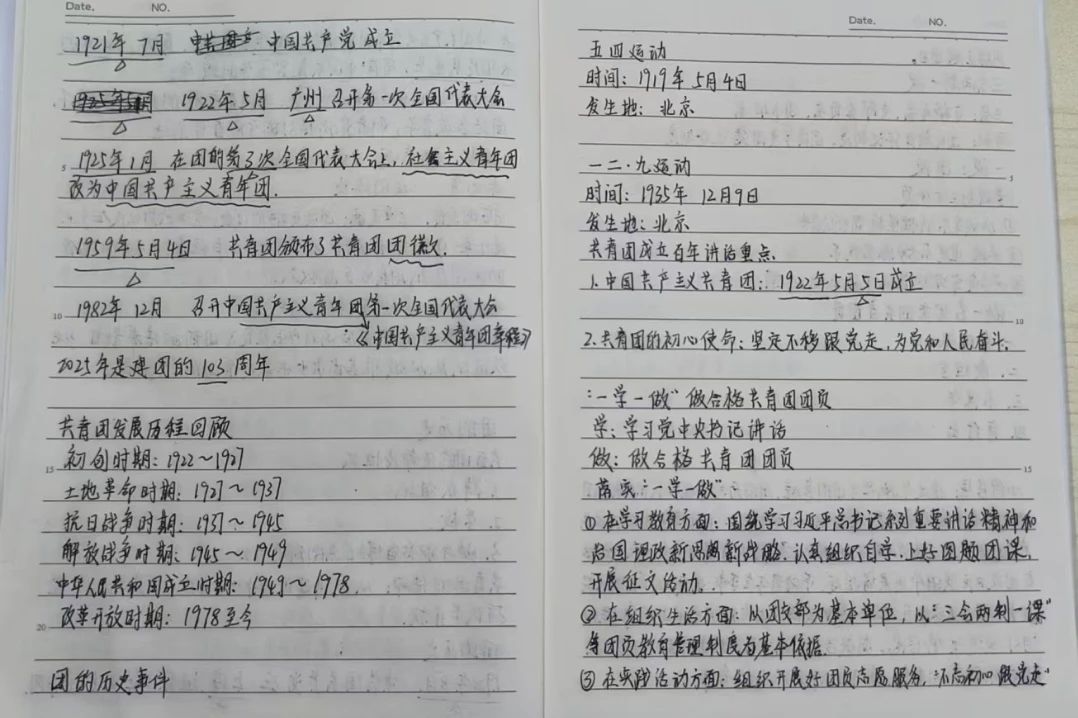 Date. NO.
1921年 7月 中国共产党成立
1922年5月 广州召开第一次全国代表大会
5 1925年1月 在团的第3次全国代表大会上，社会主义青年团
改为中国共产主义青年团.
1959年5月4日 共青团颁布了共青团团徽.
10 1982年 12月 召开中国共产主义青年团第一次全国代表大会
:《中国共产主义青年团章程》
2025年是建团的103周年
共青团发展历程回顾
15 初创时期：1922～1927
土地革命时期：1927～1937
抗日战争时期：1937～1945
解放战争时期：1945～1949
中华人民共和国成立时期：1949～1978.
20 改革开放时期：1978至今
团的历史事件
Date. NO.
五四运动
时间：1919年5月4日
发生地：北京
一二·九运动 5
时间：1935年 12月9日
发生地：北京
共青团成立百年讲话重点.
1.中国共产主义共青团：1922年5月5日成立
10
2.共青团的初心使命：坚定不移跟党走，为党和人民奋斗.
“一学一做”做合格共青团团员
学：学习党中央书记讲话
做：做合格共青团团员 15
落实“一学一做”
①在学习教育方面：围绕学习习近平总书记系列重要讲话精神和
治国理政新思想新战略.认真组织自学.上好团题团课.
开展征文活动.
②在组织生活方面：以团支部为基本单位，以“三会两制一课”
等团员教育管理制度为基本依据
③在实践活动方面：组织开展好团员志愿服务，“不忘初心 跟党走”